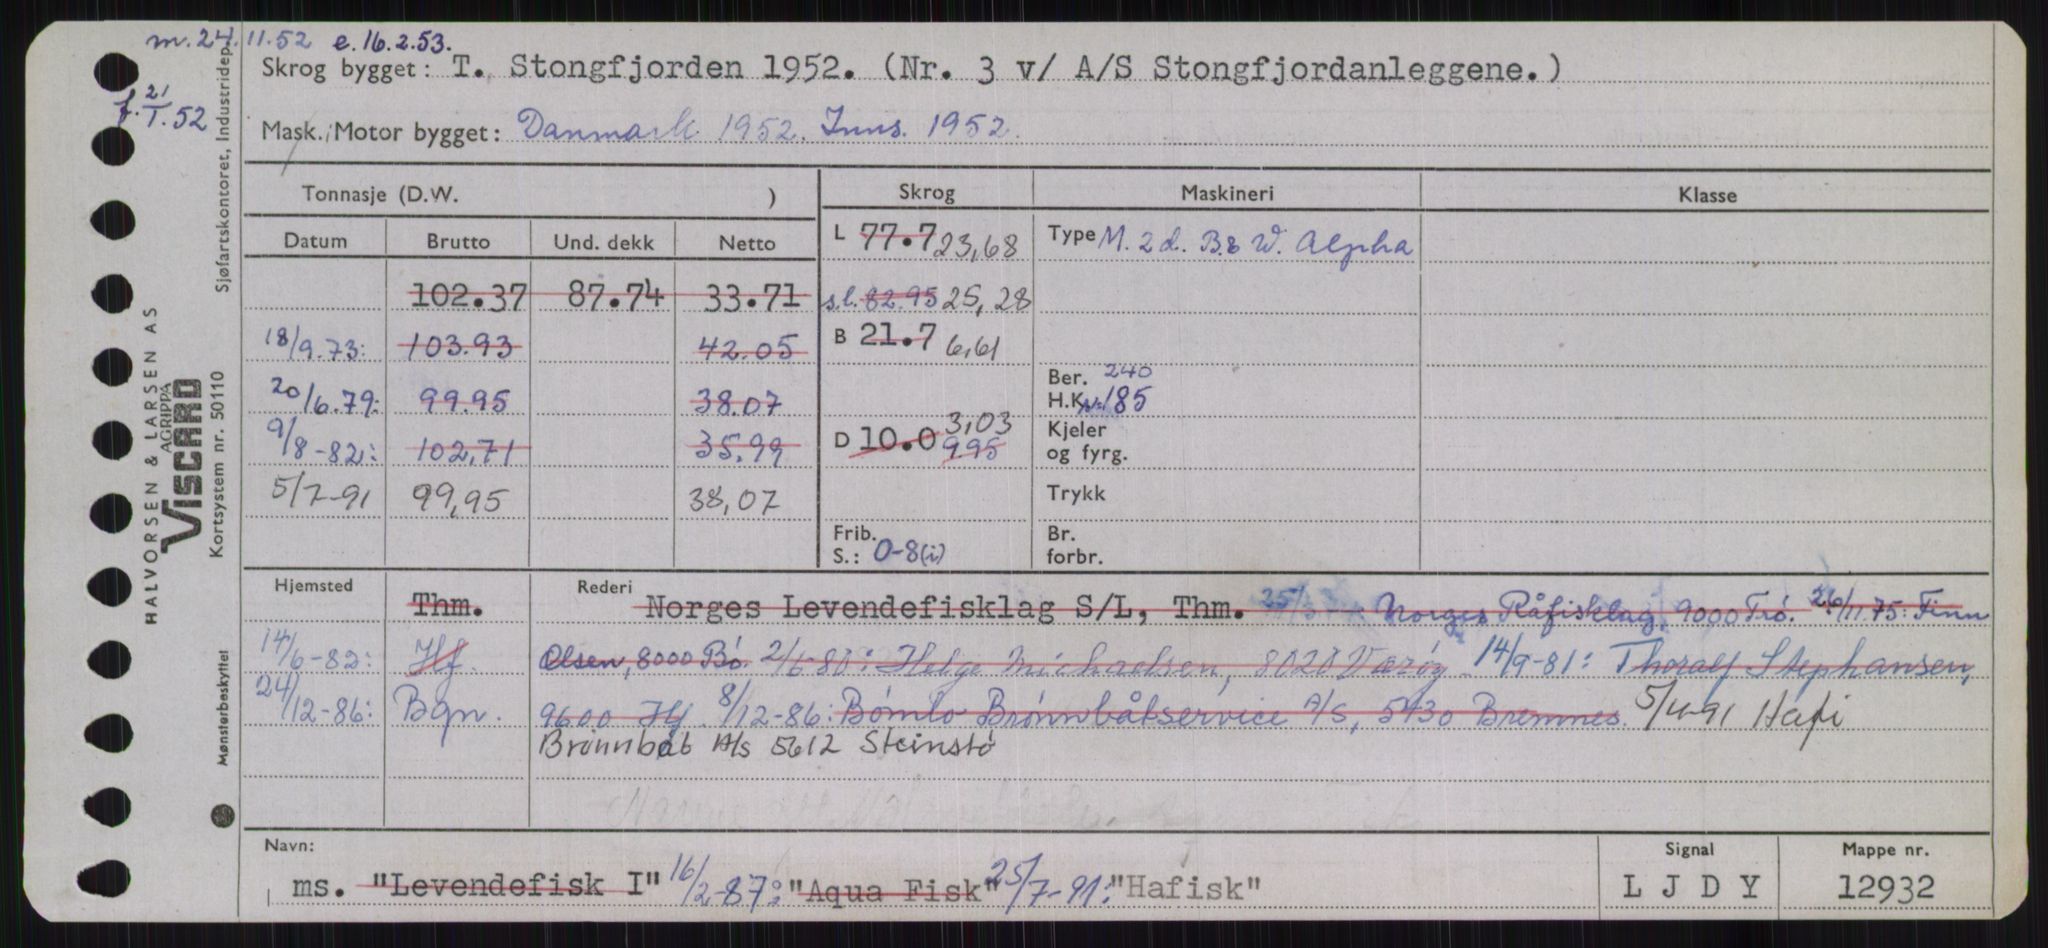 m. 24.11.52 e. 16.2.53.
Skrog bygget: T. Stongfjorden 1952. (Nr. 3 v/ A/S Stongfjordanleggene.)
f. 21/I.52
Mask./Motor bygget: Danmark 1952. Inns. 1952.
Tonnasje (D.W. ) Skrog Maskineri Klasse
Datum Brutto Und. dekk Netto L 77.7 23,68 Type M. 2 d. B & W. Alpha
102.37 87.74 33.71 s.l. 82.95 25,28
18/9.73: 103.93 42.05 B 21.7 6,61
20/6.79: 99.95 38.07 Ber. 240
H.K. 185
9/8-82: 102,71 35,99 D 10.0 9.95 3,03 Kjeler
og fyrg.
5/7-91 99,95 38,07 Trykk
Frib.
S.: 0-8(i) Br.
forbr.
Hjemsted Thm. Rederi Norges Levendefisklag S/L, Thm. 25/3 Norges Råfisklag, 9000 Trø. 26/11.75: Finn
14/6-82: Hf. Olsen, 8000 Bø. 2/6-80: Helge Michaelsen, 8020 Værøy 14/9-81: Thoralf Stephansen,
24/12-86: Bgn. 9600 Hf. 8/12-86: Bømlo Brønnbåtservice A/S, 5430 Bremnes. 5/4-91 Hafi
Brønnbåt A/s 5612 Steinstø
Navn: Signal Mappe nr.
ms. "Levendefisk I" 16/2-87: "Aqua Fisk" 25/7-91: "Hafisk" L J D Y 12932
HALVORSEN & LARSEN AS
AGRIPPA
VISCARD
Kortsystem nr. 50110
Sjøfartskontoret, Industridep.
Mønsterbeskyttet